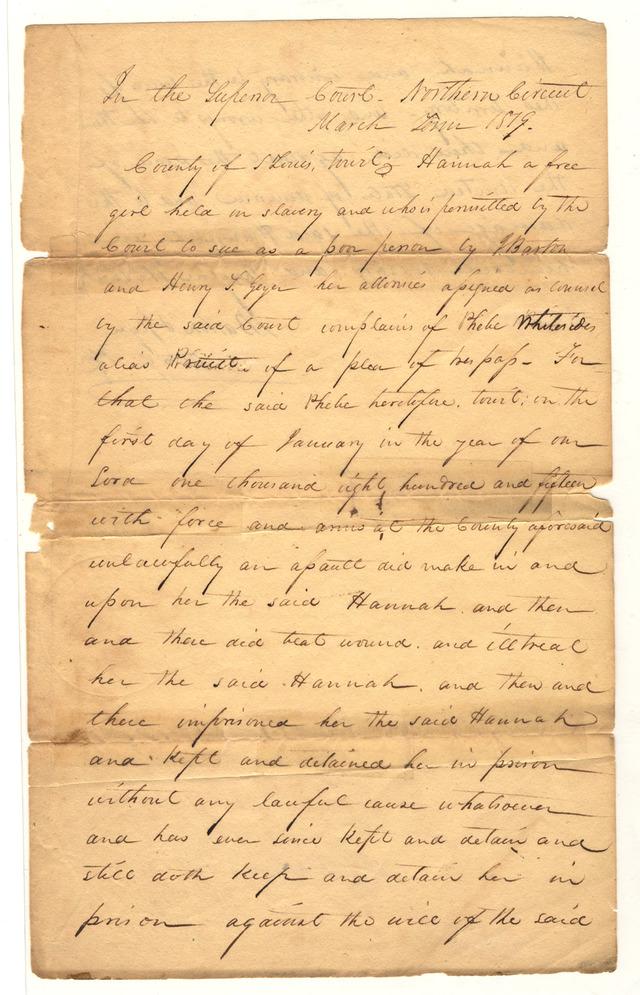 In the Superior Court - Northern Circuit
March Term 1819.
County of S Louis, towit, Hannah a free
girl held in slavery and who is permitted by the
Court to sue as a poor person by J Barton
and Henry S. Geyer her attornies assigned as counsel
by the said Court complains of Phebe Whitesides
alias Pruitt of a plea of trespass - For
that the said Phebe heretofore. towit; on the
first day of January in the year of our
Lord one thousand eight hundred and fifteen
with force and arms at the County aforesaid
unlawfully an assault did make in and
upon her the said Hannah. and then
and there did beat wound. and illtreat
her the said Hannah. and then and
there imprisoned her the said Hannah
and kept and detained her in prison
without any lawful cause whatsoever
and has ever since kept and detain and
still doth keep and detain her in
prison against the will of the said